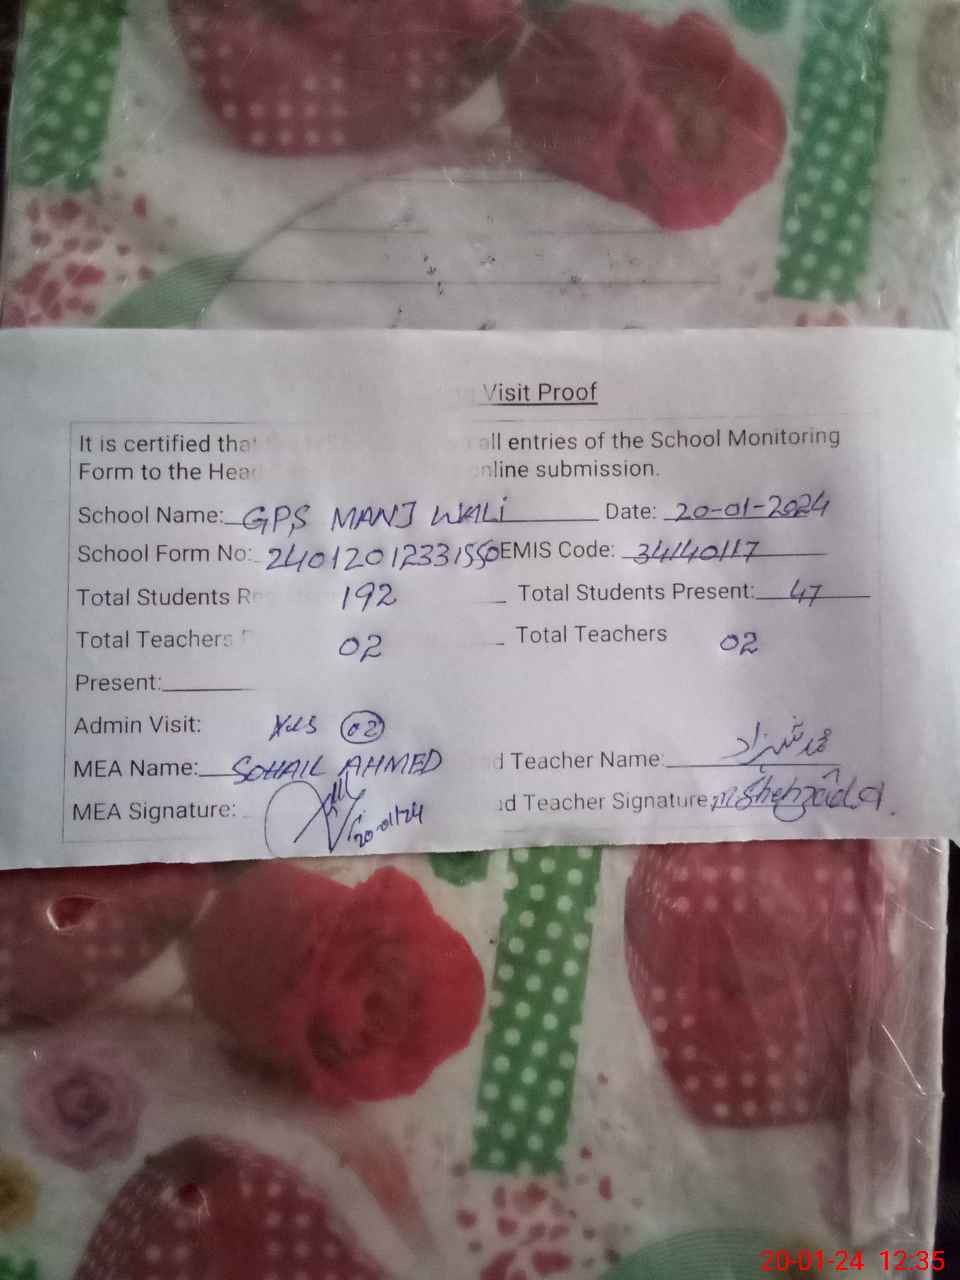 Visit Proof
It is certified that all entries of the School Monitoring
Form to the Head online submission.
School Name: GPS MANJ WALI Date: 20-01-2024
School Form No: 24012012331550 EMIS Code: 34140117
Total Students Re 192 Total Students Present: 47
Total Teachers 02 Total Teachers 02
Present:
Admin Visit: Yes 02
MEA Name: SOHAIL AHMED d Teacher Name: محمد شہزاد
MEA Signature: 20-01/24 d Teacher Signature M. Shehzad
20-01-24 12:35